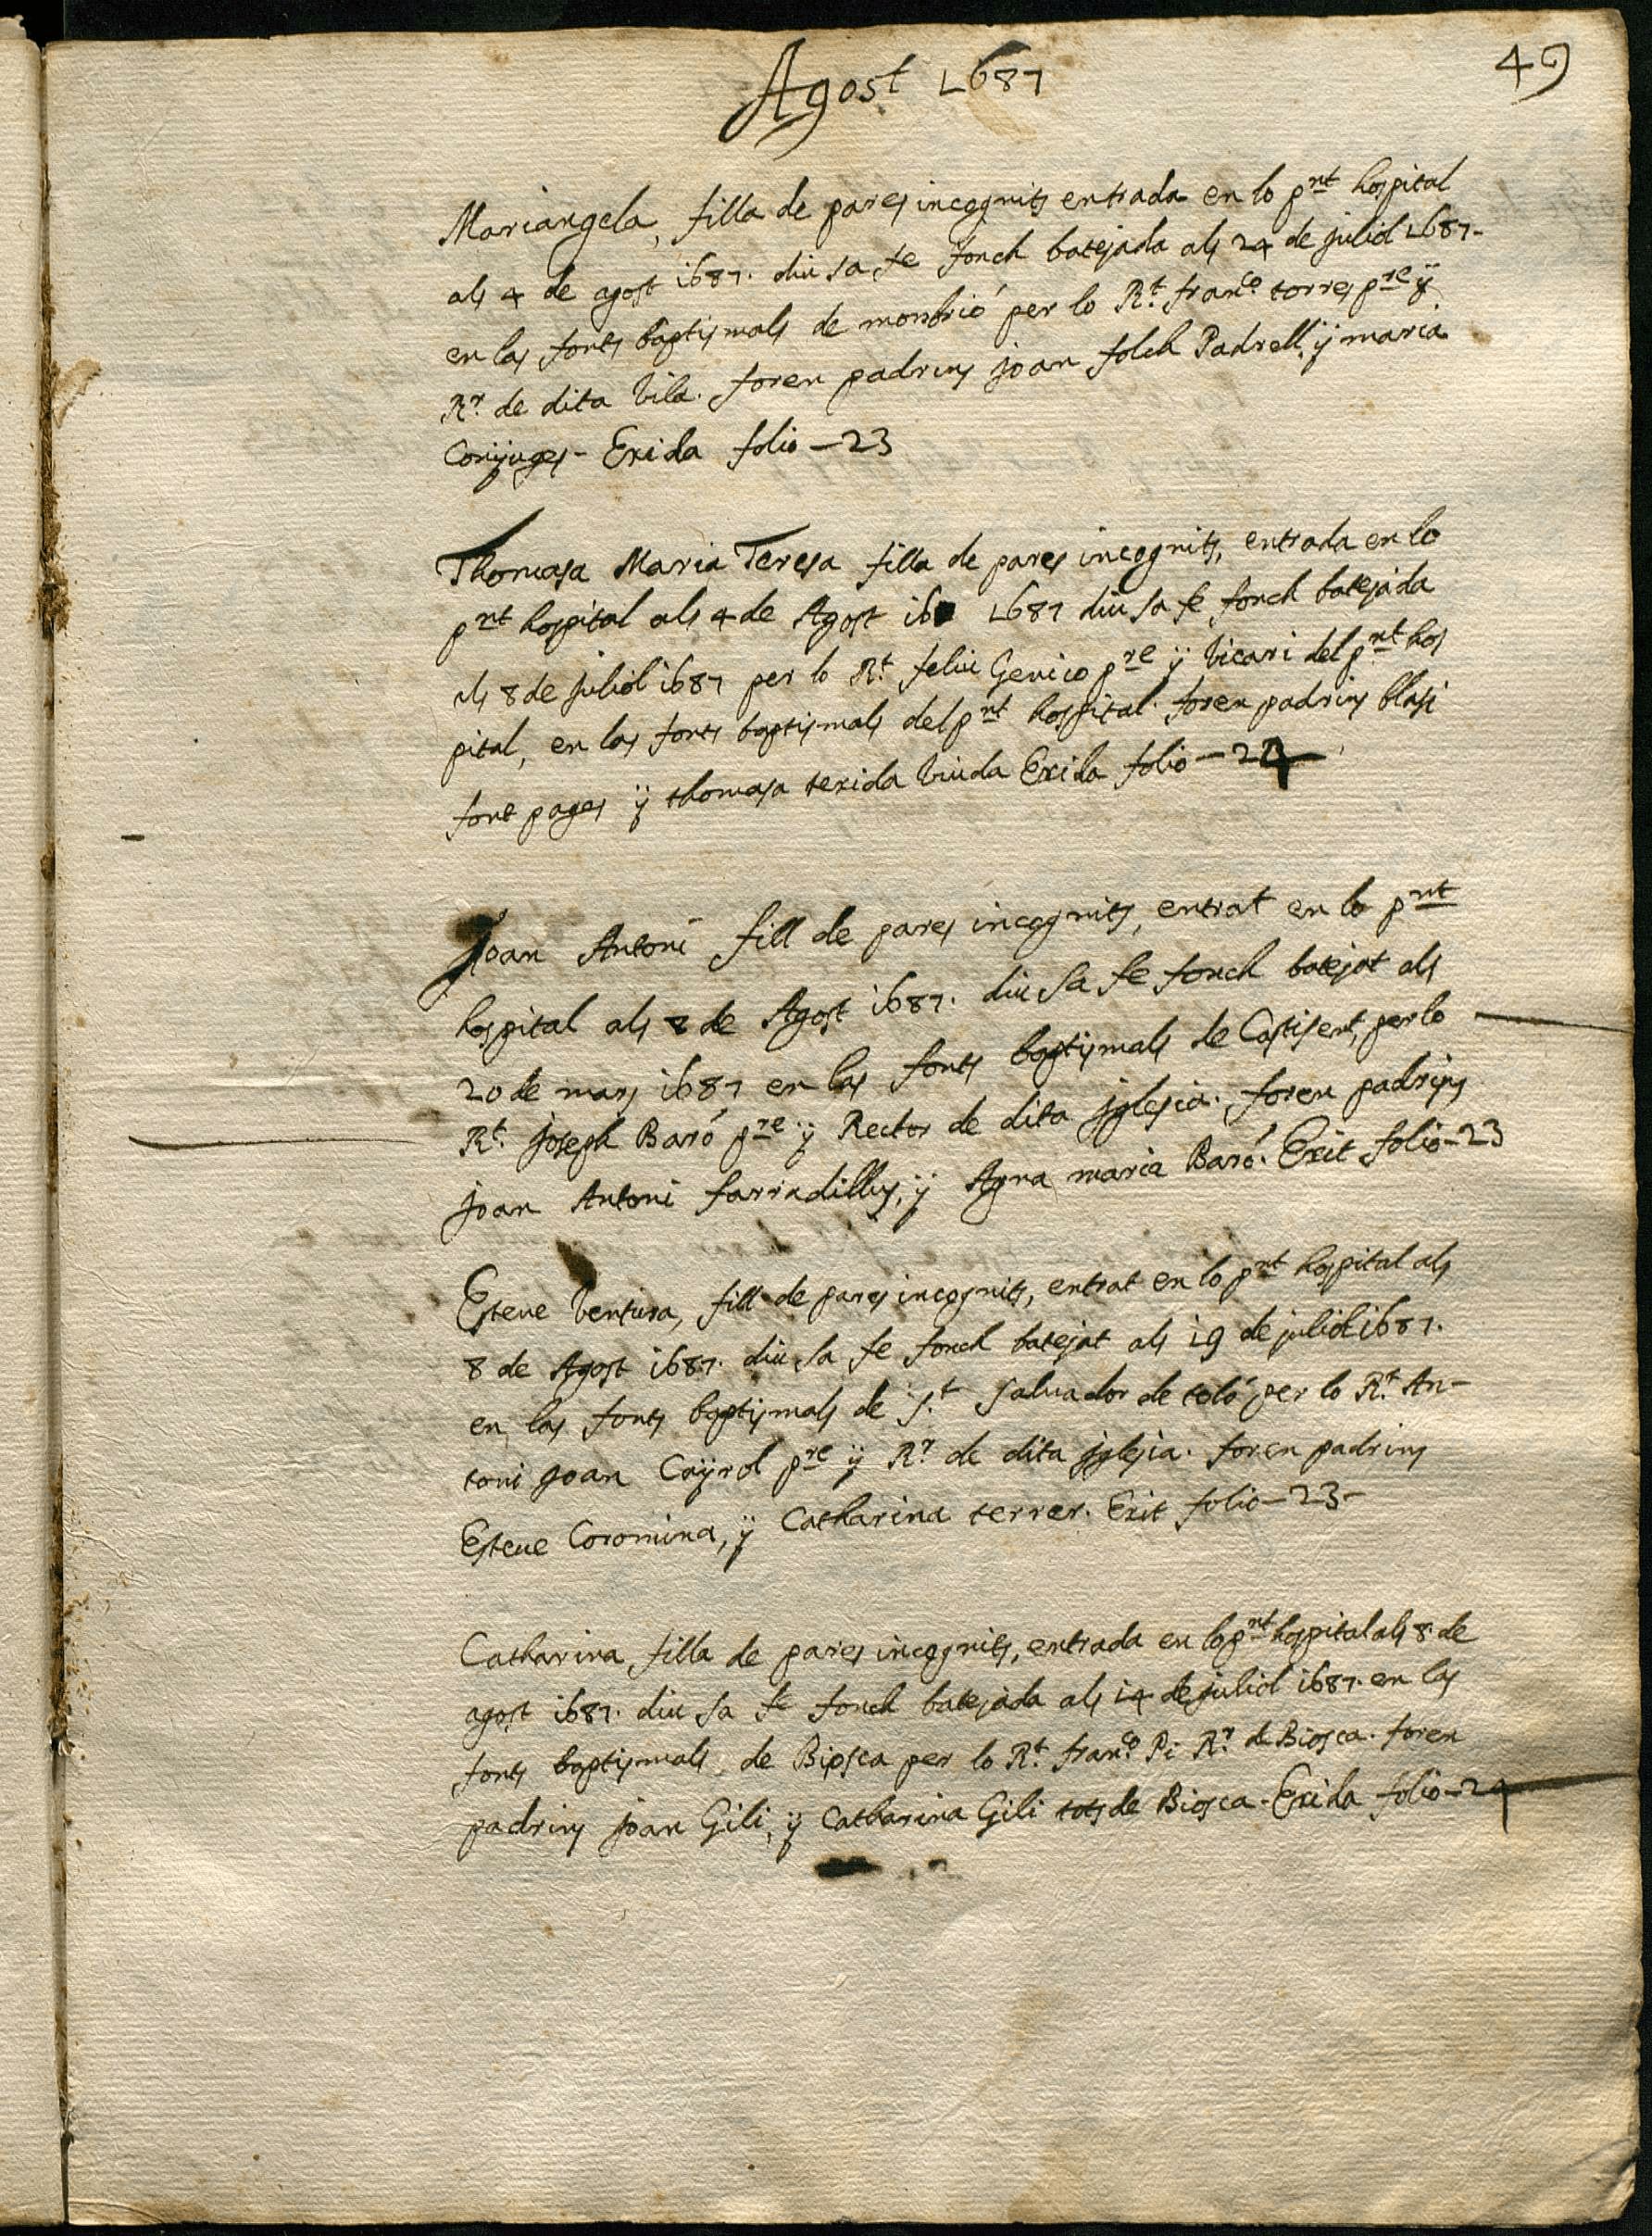 49
Agost 1687
Mariangela, filla de pares incognits entrada en lo pnt hospital
als 4 de agost 1687. diu sa fe fonch batejada als 24 de juliol 1687-
en las fonts baptismals de monbrió per lo Rt. franco. torres pre ÿ
Rr. de dita vila. foren padrins joan folch Padrell, ÿ maria
Conÿuges - Exida folio - 23
Thomasa Maria Teresa filla de pares incognits, entrada en lo
pnt hospital als 4 de Agost 16 1687 diu sa fe fonch batejada
als 8 de juliol 1687 per lo Rt. feliu Genico pre ÿ vicari del pnt hos
pital, en las fonts baptismals del pnt hospital. foren padrins blasi
font pages ÿ thomasa texida viuda Exida folio - 24
Joan Antoni fill de pares incognits, entrat en lo pnt
hospital als 8 de Agost 1687. diu sa fe fonch batejat als
20 de mars 1687 en las fonts baptismals de Castisent, per lo
Rt. joseph Baró pre ÿ Rector de dita jglesia. foren padrins
joan Antoni farradillas, ÿ Agna maria Baró. Exit folio - 23
Esteve Ventura, fill de pares incognits, entrat en lo pnt hospital als
8 de Agost 1687. diu sa fe fonch batejat als 19 de juliol 1687.
en las fonts baptismals de S.t Salvador de toló per lo Rt. An-
toni joan Caÿrol pre ÿ Rr de dita jglesia. foren padrins
Esteve Coromina, ÿ Catharina terrer. Exit folio - 23 -
Catharina, filla de pares incognits, entrada en lo pnt hospital als 8 de
agost 1687. diu sa fe fonch batejada als 14 de juliol 1687. en las
fonts baptismals, de Biosca per lo Rt. franco. Pi Rr. de Biosca. foren
padrins joan Gili, ÿ Catharina Gili tots de Biosca. Exida folio - 24